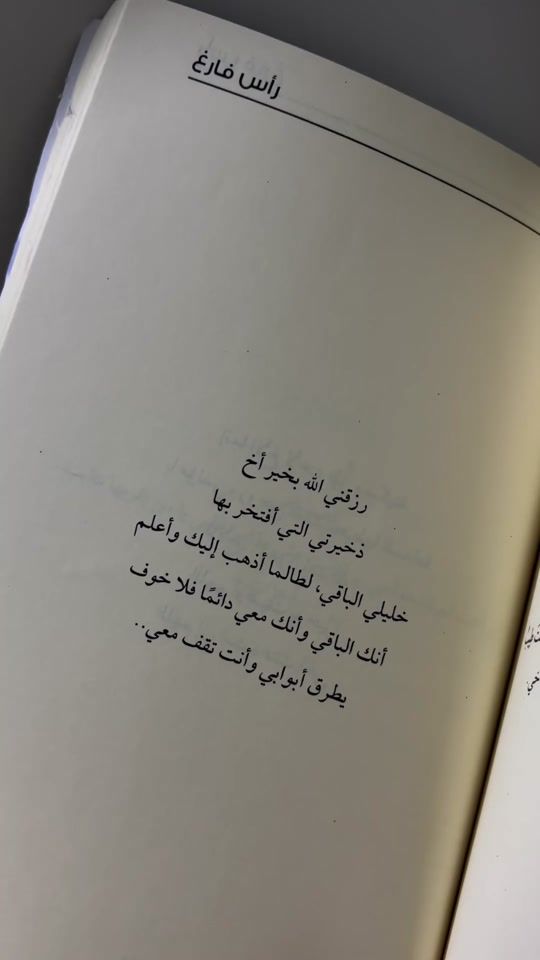 رأس فارغ
رزقني الله بخير أخ
ذخيرتي التي أفتخر بها
خليلي الباقي، لطالما أذهب إليك وأعلم
أنك الباقي وأنك معي دائمًا فلا خوف
يطرق أبوابي وأنت تقف معي..